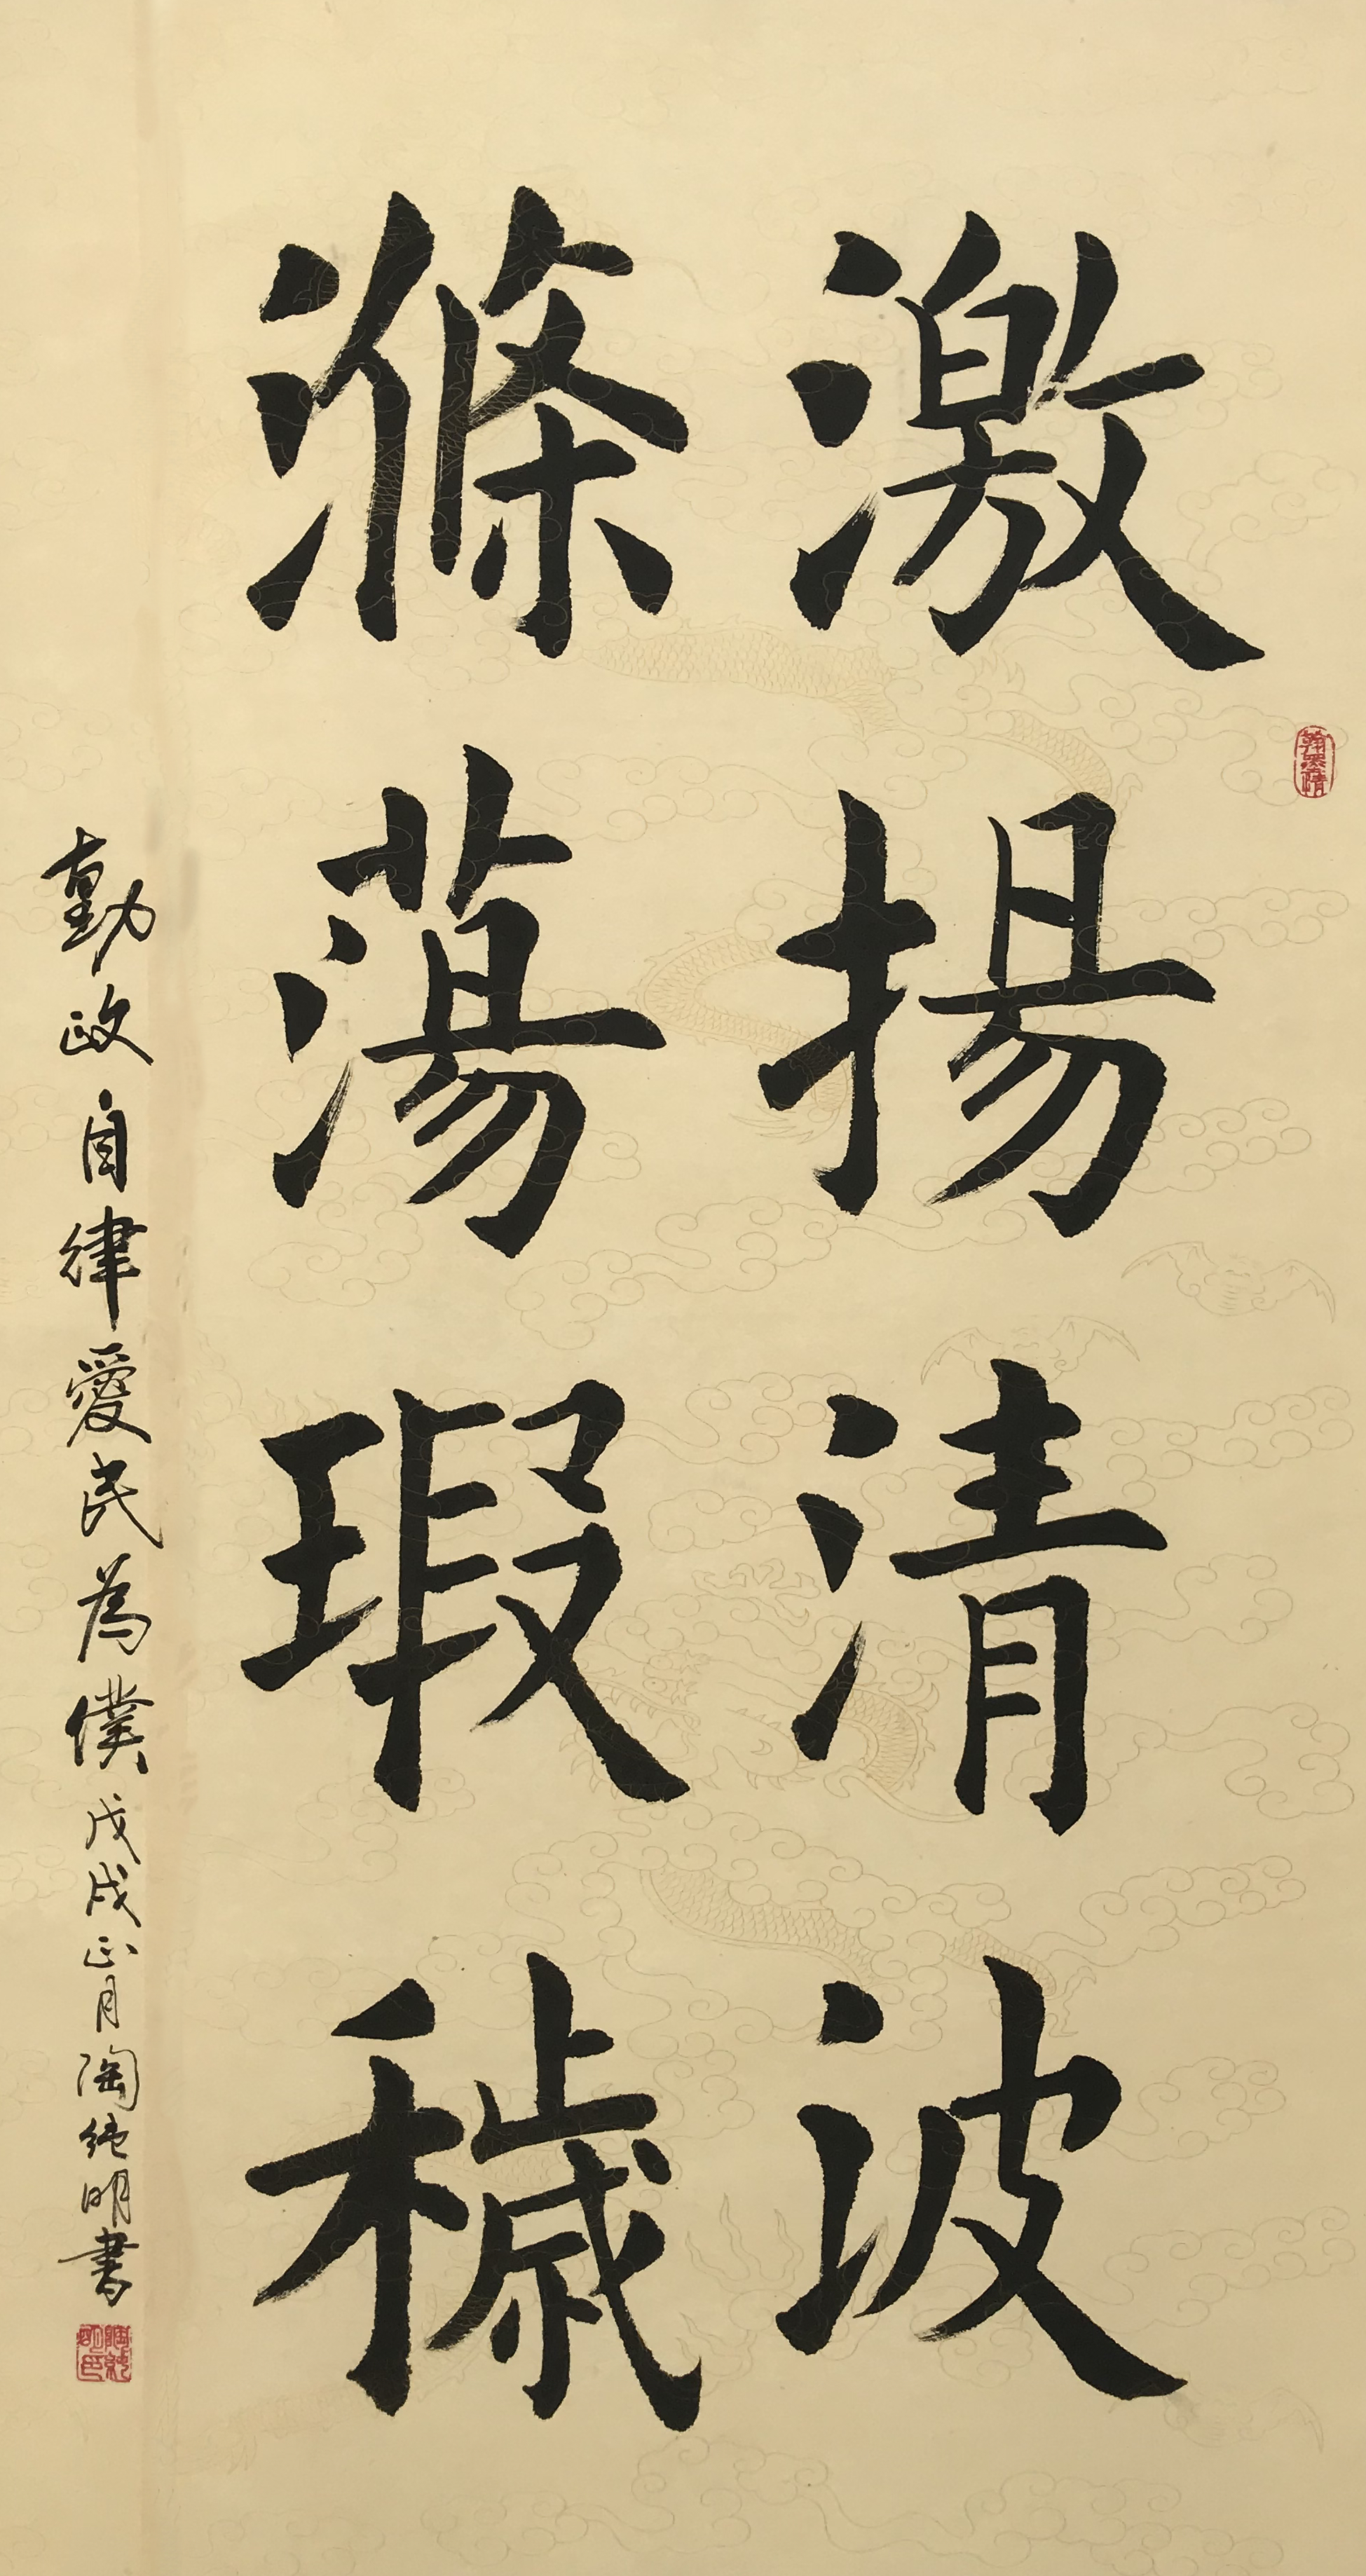 激揚清波
滌蕩瑕穢
勤政自律愛民為僕戊戌正月陶純明書
翰墨情